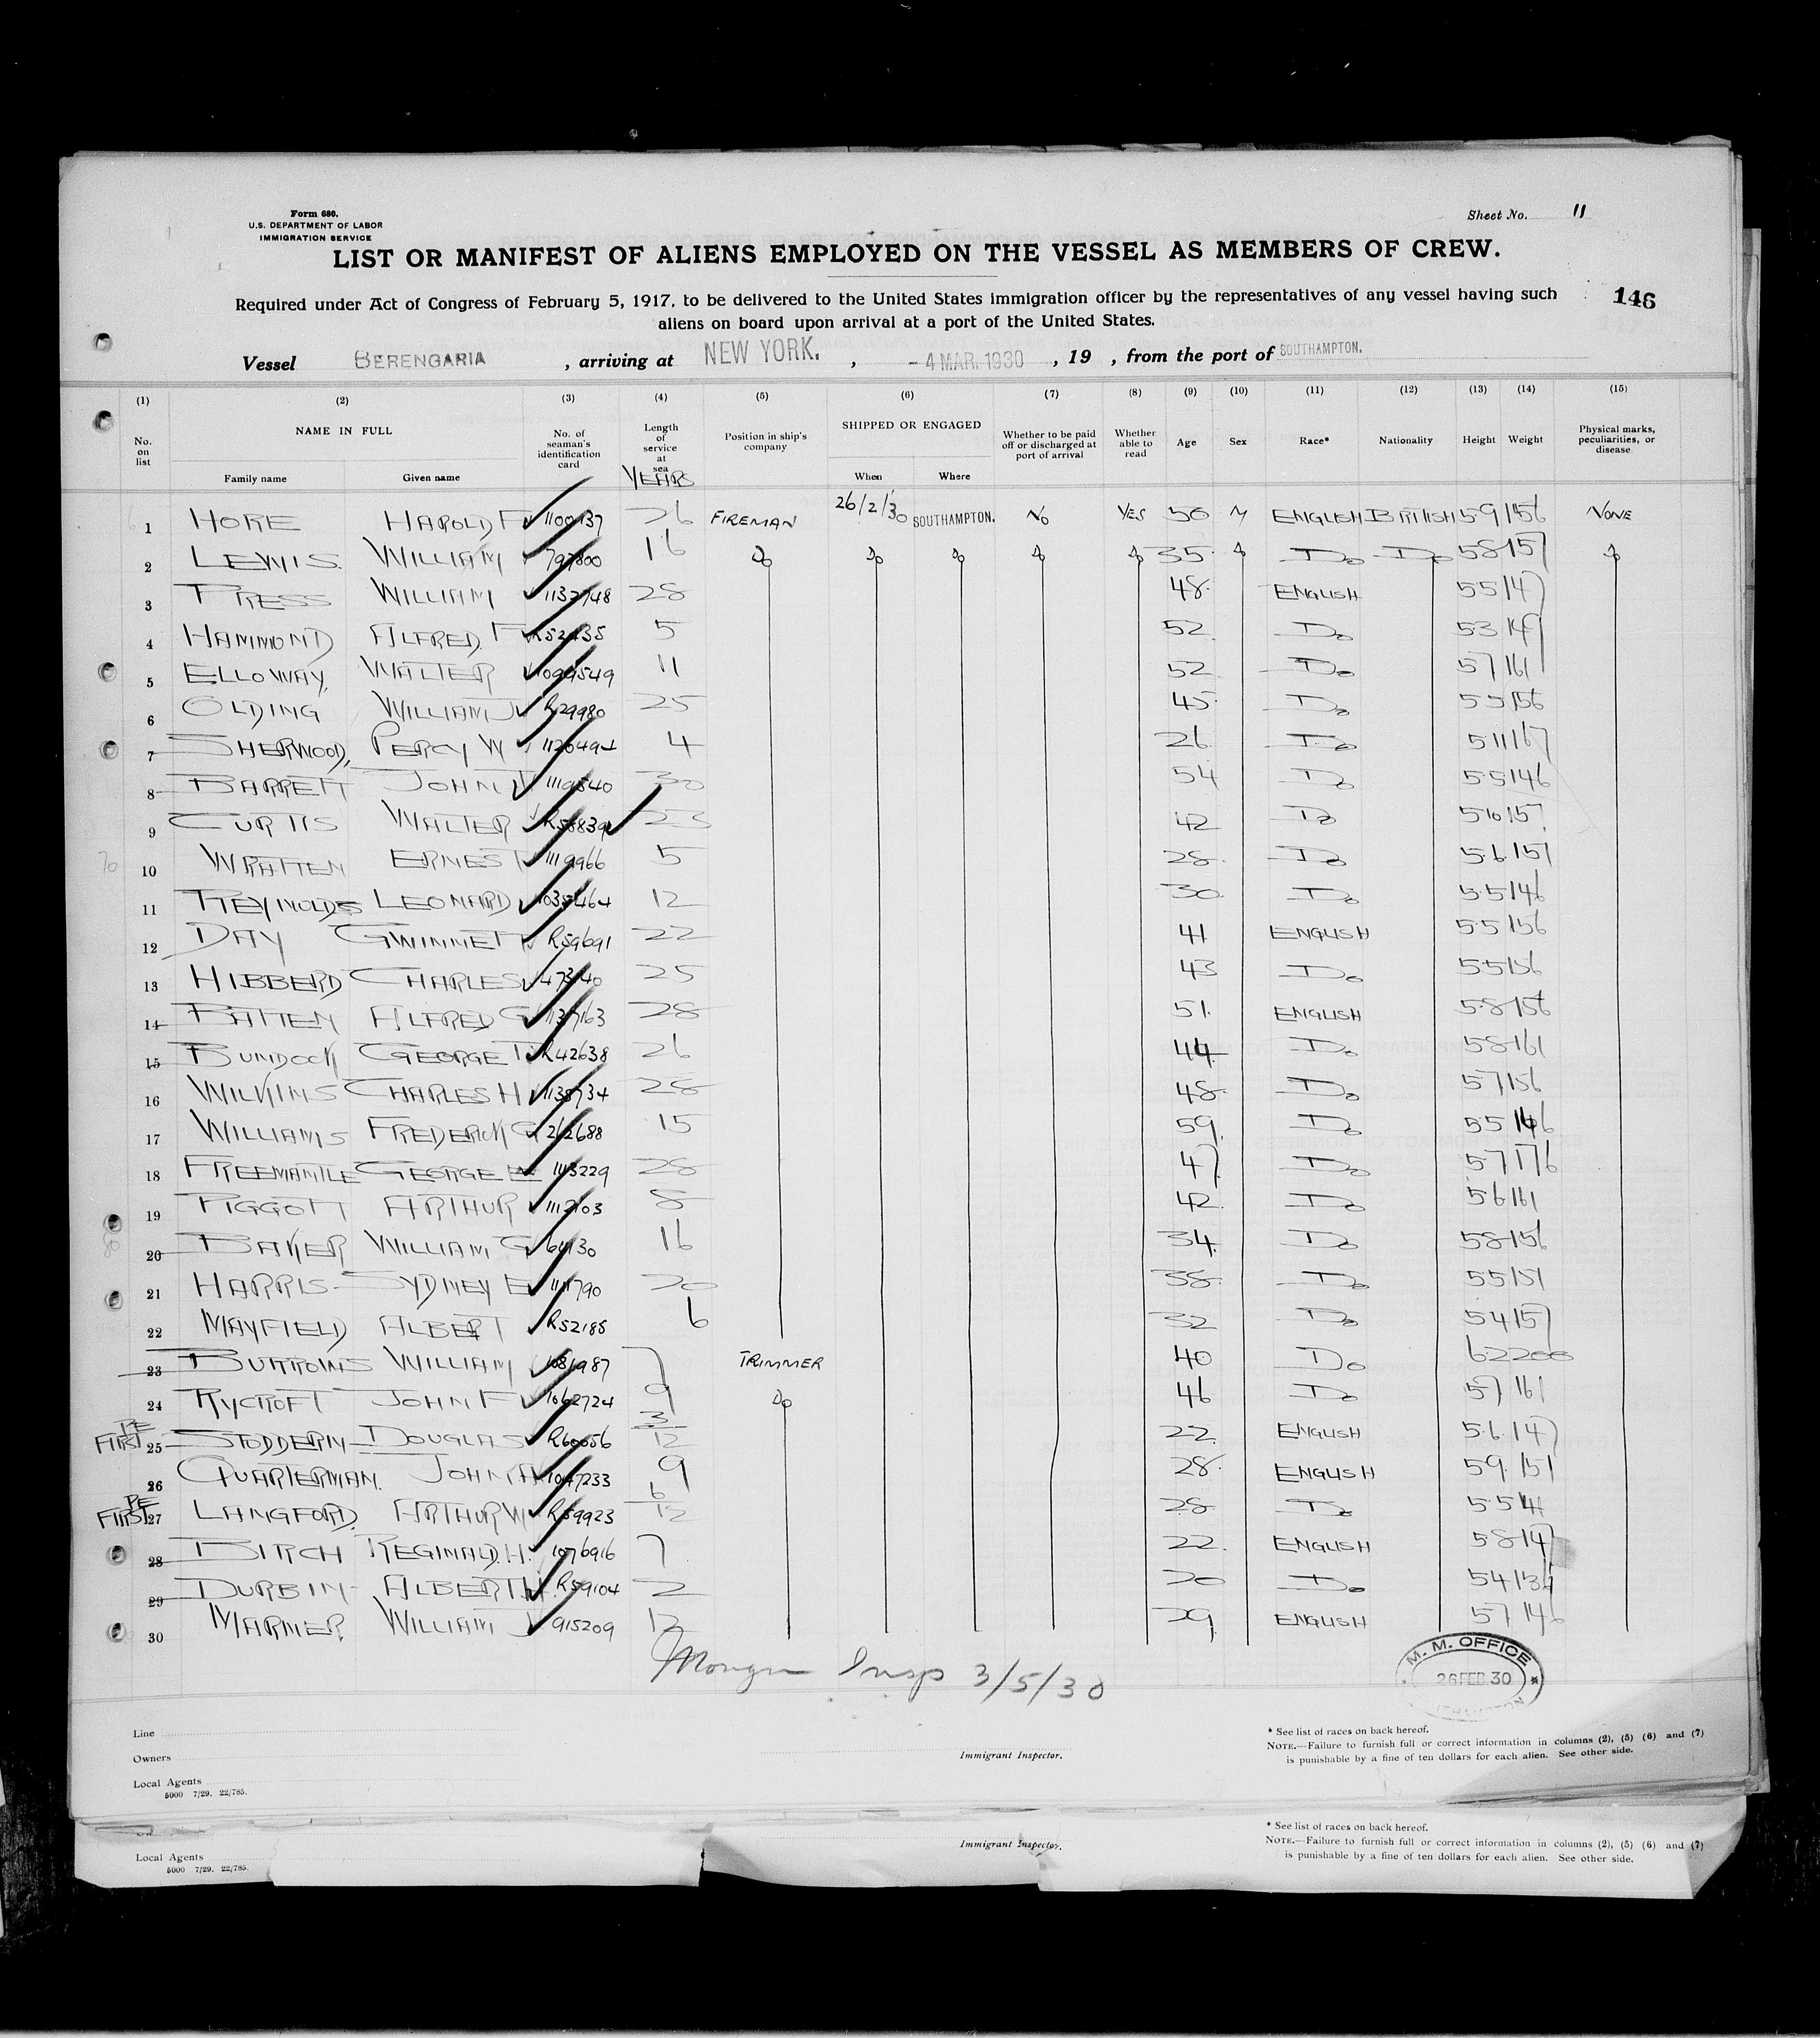 Form 680.
U.S. DEPARTMENT OF LABOR
IMMIGRATION SERVICE
Sheet No. 11
LIST OR MANIFEST OF ALIENS EMPLOYED ON THE VESSEL AS MEMBERS OF CREW.
Required under Act of Congress of February 5, 1917, to be delivered to the United States immigration officer by the representatives of any vessel having such
146
aliens on board upon arrival at a port of the United States.
Vessel BERENGARIA , arriving at NEW YORK. , - 4 MAR. 1930 , 19 , from the port of SOUTHAMPTON.
(1) (2) (3) (4) (5) (6) (7) (8) (9) (10) (11) (12) (13) (14) (15)
No. on list NAME IN FULL Family name Given name No. of seaman's identification card Length of service at sea YEARS Position in ship's company SHIPPED OR ENGAGED When Where Whether to be paid off or discharged at port of arrival Whether able to read Age Sex Race* Nationality Height Weight Physical marks, peculiarities, or disease
1 HORE HAROLD F 1100137 26 FIREMAN 26/2/30 SOUTHAMPTON. NO YES 56 M ENGLISH BRITISH 59 156 NONE
2 LEWIS. WILLIAM 797800 16 Do Do Do Do Do 35 Do Do Do 58 157 Do
3 PRESS WILLIAM 1132748 28 48 ENGLISH 55 147
4 HAMMOND ALFRED. F R52435 5 52 Do 53 149
5 ELLOWAY. WALTER 1099549 11 52 Do 57 161
6 OLDING WILLIAM J R29980 25 45 Do 55 156
7 SHERWOOD, PERCY W 1126494 4 26 Do 511 167
8 BARRETT JOHN 1119540 30 54 Do 55 146
9 CURTIS WALTER R58839 23 42 Do 510 157
10 WRATTEN ERNEST 1119966 5 28 Do 5.6. 151
11 REYNOLDS LEONARD 1035464 12 30 Do 55 146
12 DAY GWINNETT R59691 22 41 ENGLISH 55 156
13 HIBBERD CHARLES 47340 25 43 Do 55 156
14 BATTEN ALFRED G 1137163 28 51. ENGLISH 58 156
15 BUNDOCK GEORGE T R42638 26 44 Do 58 161
16 WILKINS CHARLES H 1138734 28 48 Do 57 156
17 WILLIAMS FREDERICK G 262688 15 59 Do 55 146
18 FREEMANTLE GEORGE E 1113229 28 47 Do 57 176
19 PIGGOTT ARTHUR 1112103 8 42 Do 56 161
20 BAKER WILLIAM G 64130 16 34 Do 58 156
21 HARRIS SYDNEY E 1111790 20 38 Do 55 151
22 MAYFIELD ALBERT R52185 6 32 Do 54 157
23 BURROWS WILLIAM 1081987 7 TRIMMER 40 Do 62 200
24 RYCROFT JOHN F 1062724 9 Do 46 Do 57 161
PE FIRST 25 STODDERN DOUGLAS R60056 3/12 22 ENGLISH 5.6. 147
26 QUARTERMAN. JOHN A 1047233 9 28 ENGLISH 59. 151
PE FIRST 27 LANGFORD ARTHUR W R59923 6/12 28 Do 55 141
28 BIRCH REGINALD. H. 1076916 7 22. ENGLISH 58 147
29 DURBIN ALBERT H R59104 2 20 Do 54 136
30 MARNER WILLIAM J 915209 12 29 ENGLISH 57 146
Insp 3/5/30
M. M. OFFICE
26 FEB. 30
Line
Owners
Local Agents
5000 7/29. 22/785.
Immigrant Inspector.
* See list of races on back hereof.
NOTE.—Failure to furnish full or correct information in columns (2), (5) (6) and (7)
is punishable by a fine of ten dollars for each alien. See other side.
Local Agents
5000 7/29. 22/785.
Immigrant Inspector.
* See list of races on back hereof.
NOTE.—Failure to furnish full or correct information in columns (2), (5) (6) and (7)
is punishable by a fine of ten dollars for each alien. See other side.